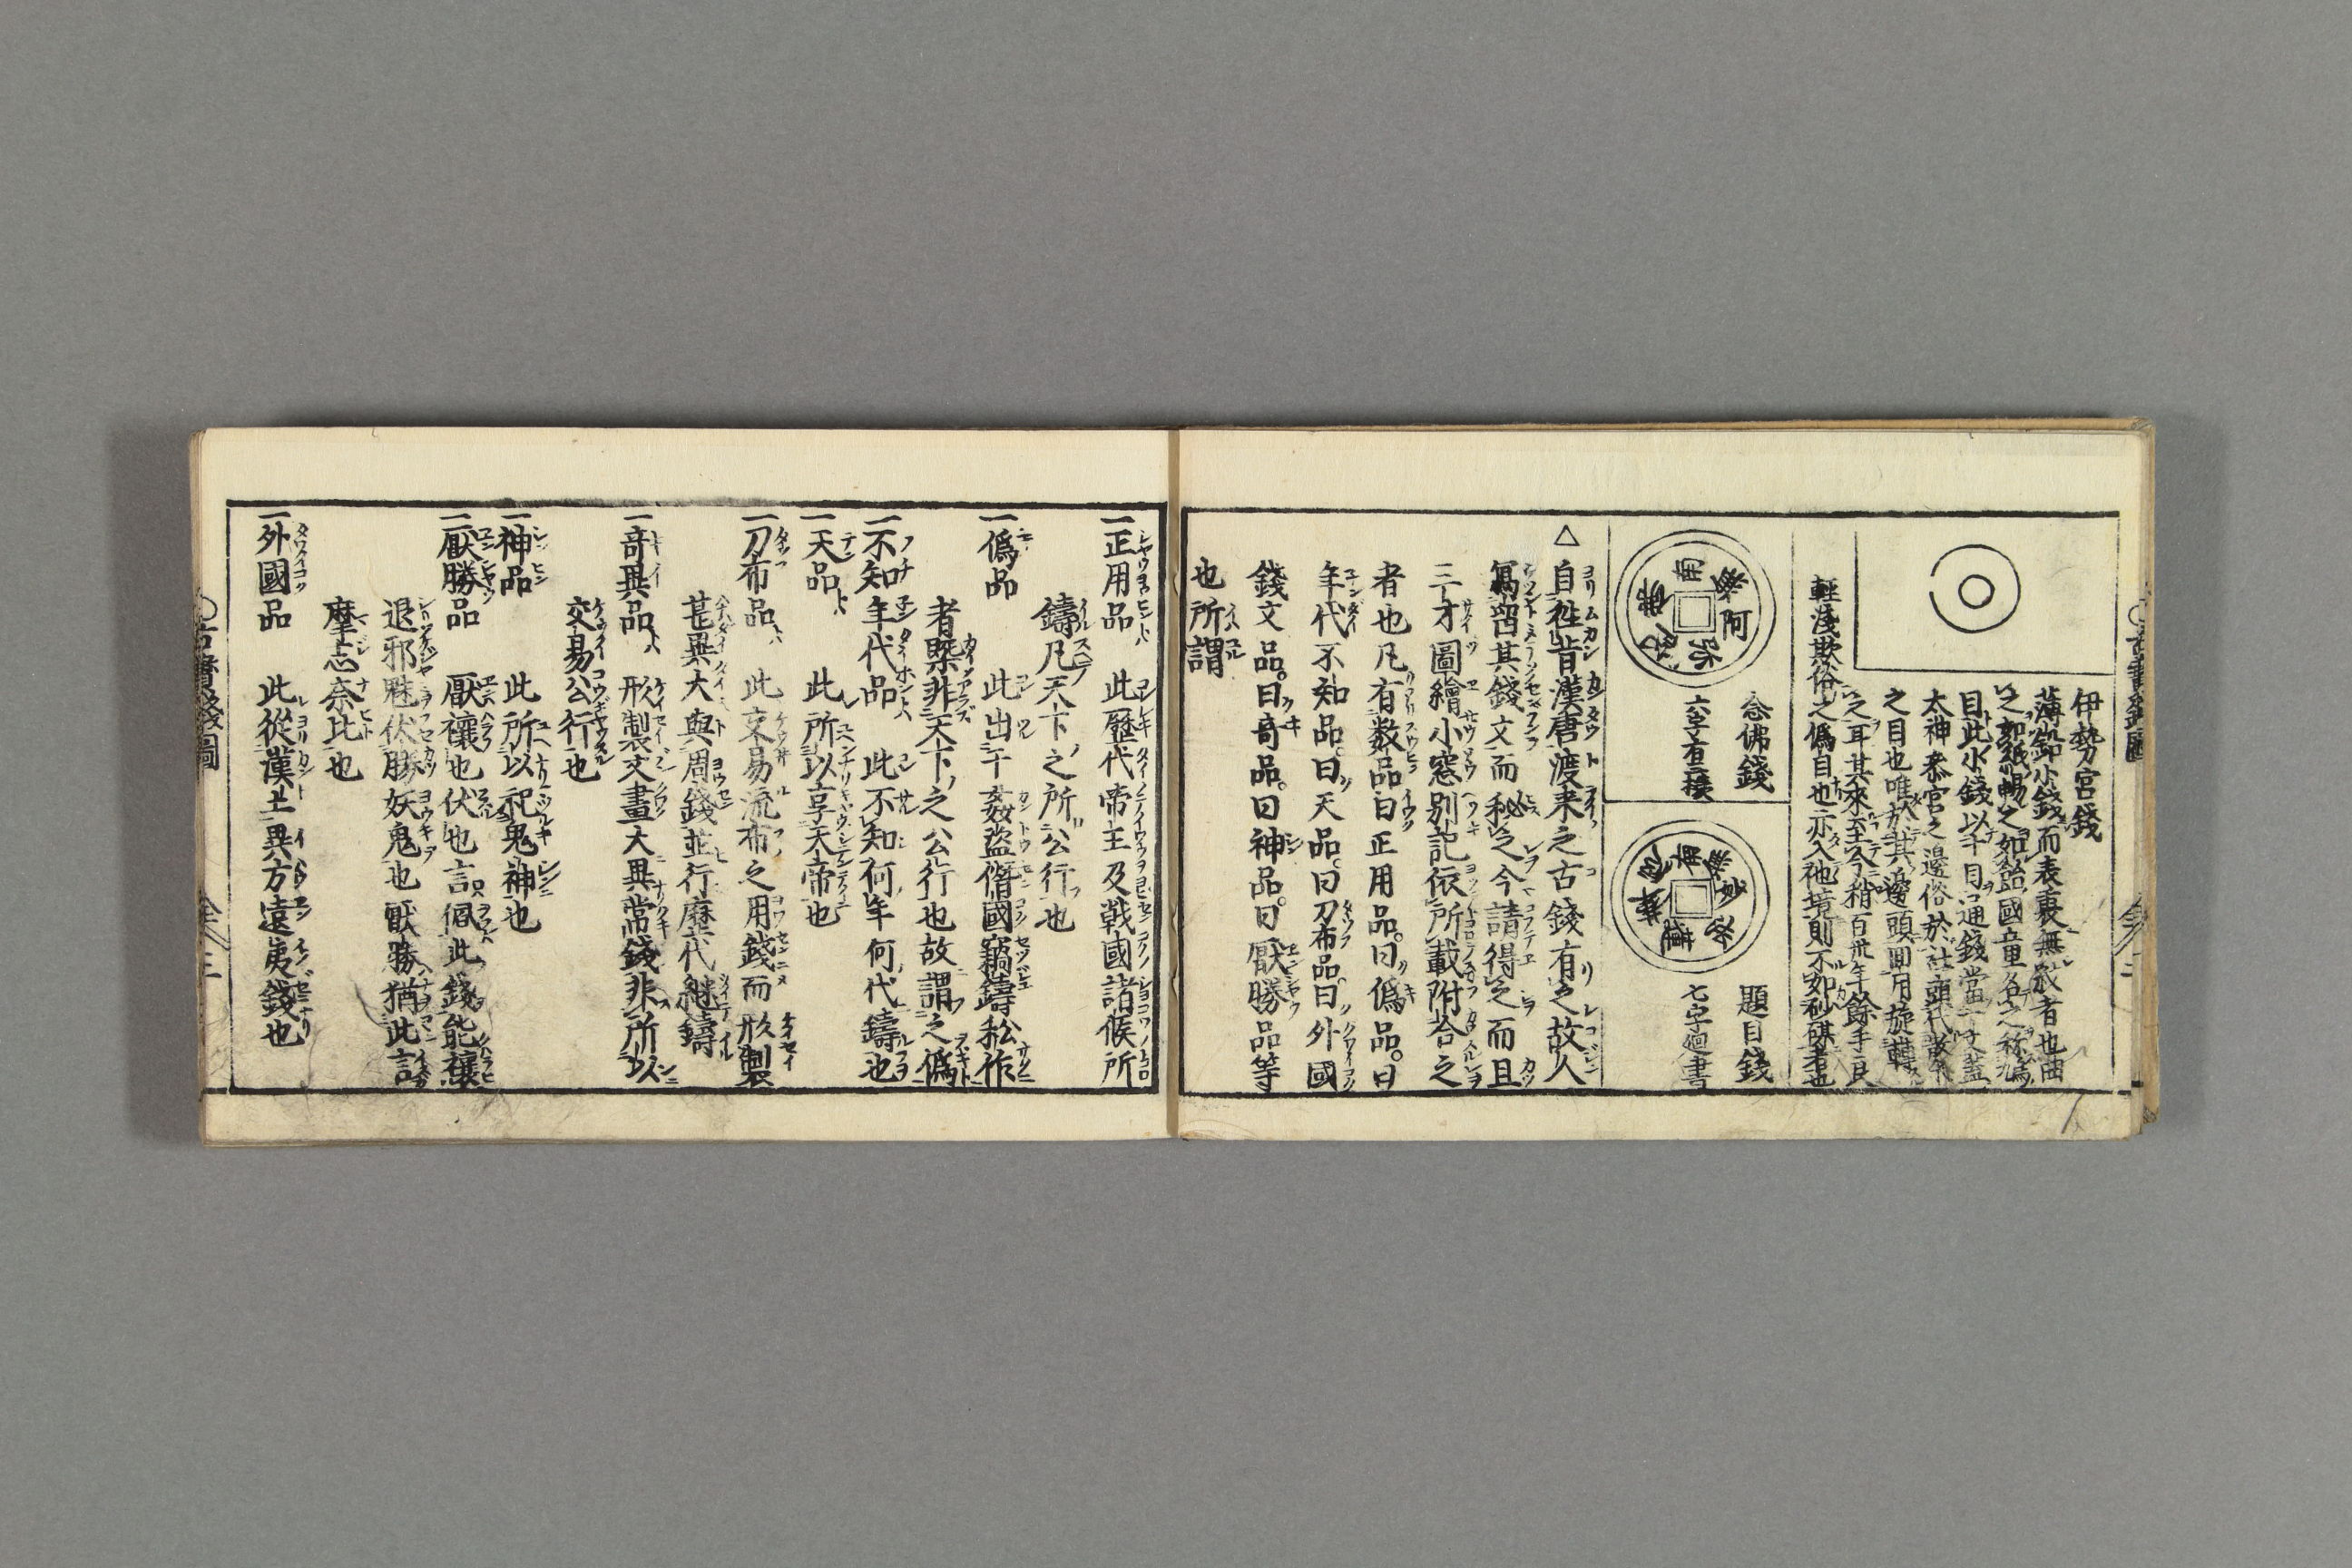 伊勢宮錢
薄鉛小錢而表裏無紋者也
目此小錢以十目通錢當一文蓋
太神泰宮之邊俗於社頭代散米
之目也唯於其邊頭囬用旋轉
之耳其來至今稍百卅年餘手
輕淺欺俗之偽自也亦入他境則不如砂礫者也
念佛錢
六字有二樣
南無阿弥陀佛
題目錢
七字廻書
南無妙法蓮華經
△自往昔漢唐渡来之古錢有之故人
寫留其錢文而秘之今請得之而且
三才圖繪小窓別記依所載附拾之
者也凡有数品曰正用品。曰偽品。曰
年代不知品。曰天品。曰刀布品。曰外國
錢文品。曰奇品。曰神品。曰厭勝品等
也所謂
一正用品 此歷代帝王及戰國諸候所
鑄凡天下之所公行也
一偽品 此出于姦盜僭國竊鑄私作
者槩非天下之公行也故謂之偽
一不知年代品 此不知何年何代鑄也
一天品 此所以享天帝也
一刀布品 此交易流布之用錢而形製
甚異大與周錢並行歷代継鑄
一奇異品 形製文畫大異常錢非所以
交易公行也
一神品 此所以祀鬼神也
一厭勝品 厭禳也伏也言佩此錢能禳
退邪魅伏勝妖鬼也厭勝猶此言
摩志奈比也
一外國品 此從漢土異方遠夷錢也